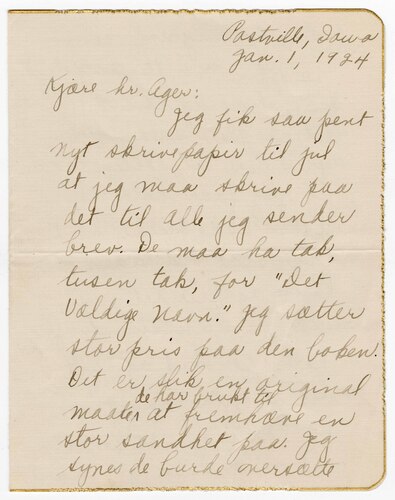 Postville, Iowa
Jan. 1, 1924
Kjære hr. Ager:
Jeg fik saa pent
nyt skrivepapir til jul
at jeg maa skrive paa
det til alle jeg sender
brev. De maa ha tak,
tusen tak, for "Det
Vældige Navn." Jeg sætter
stor pris paa den boken.
Det er slik en original
de har brukt til
maate at fremhæve en
stor sandhet paa. Jeg
synes de burde oversætte